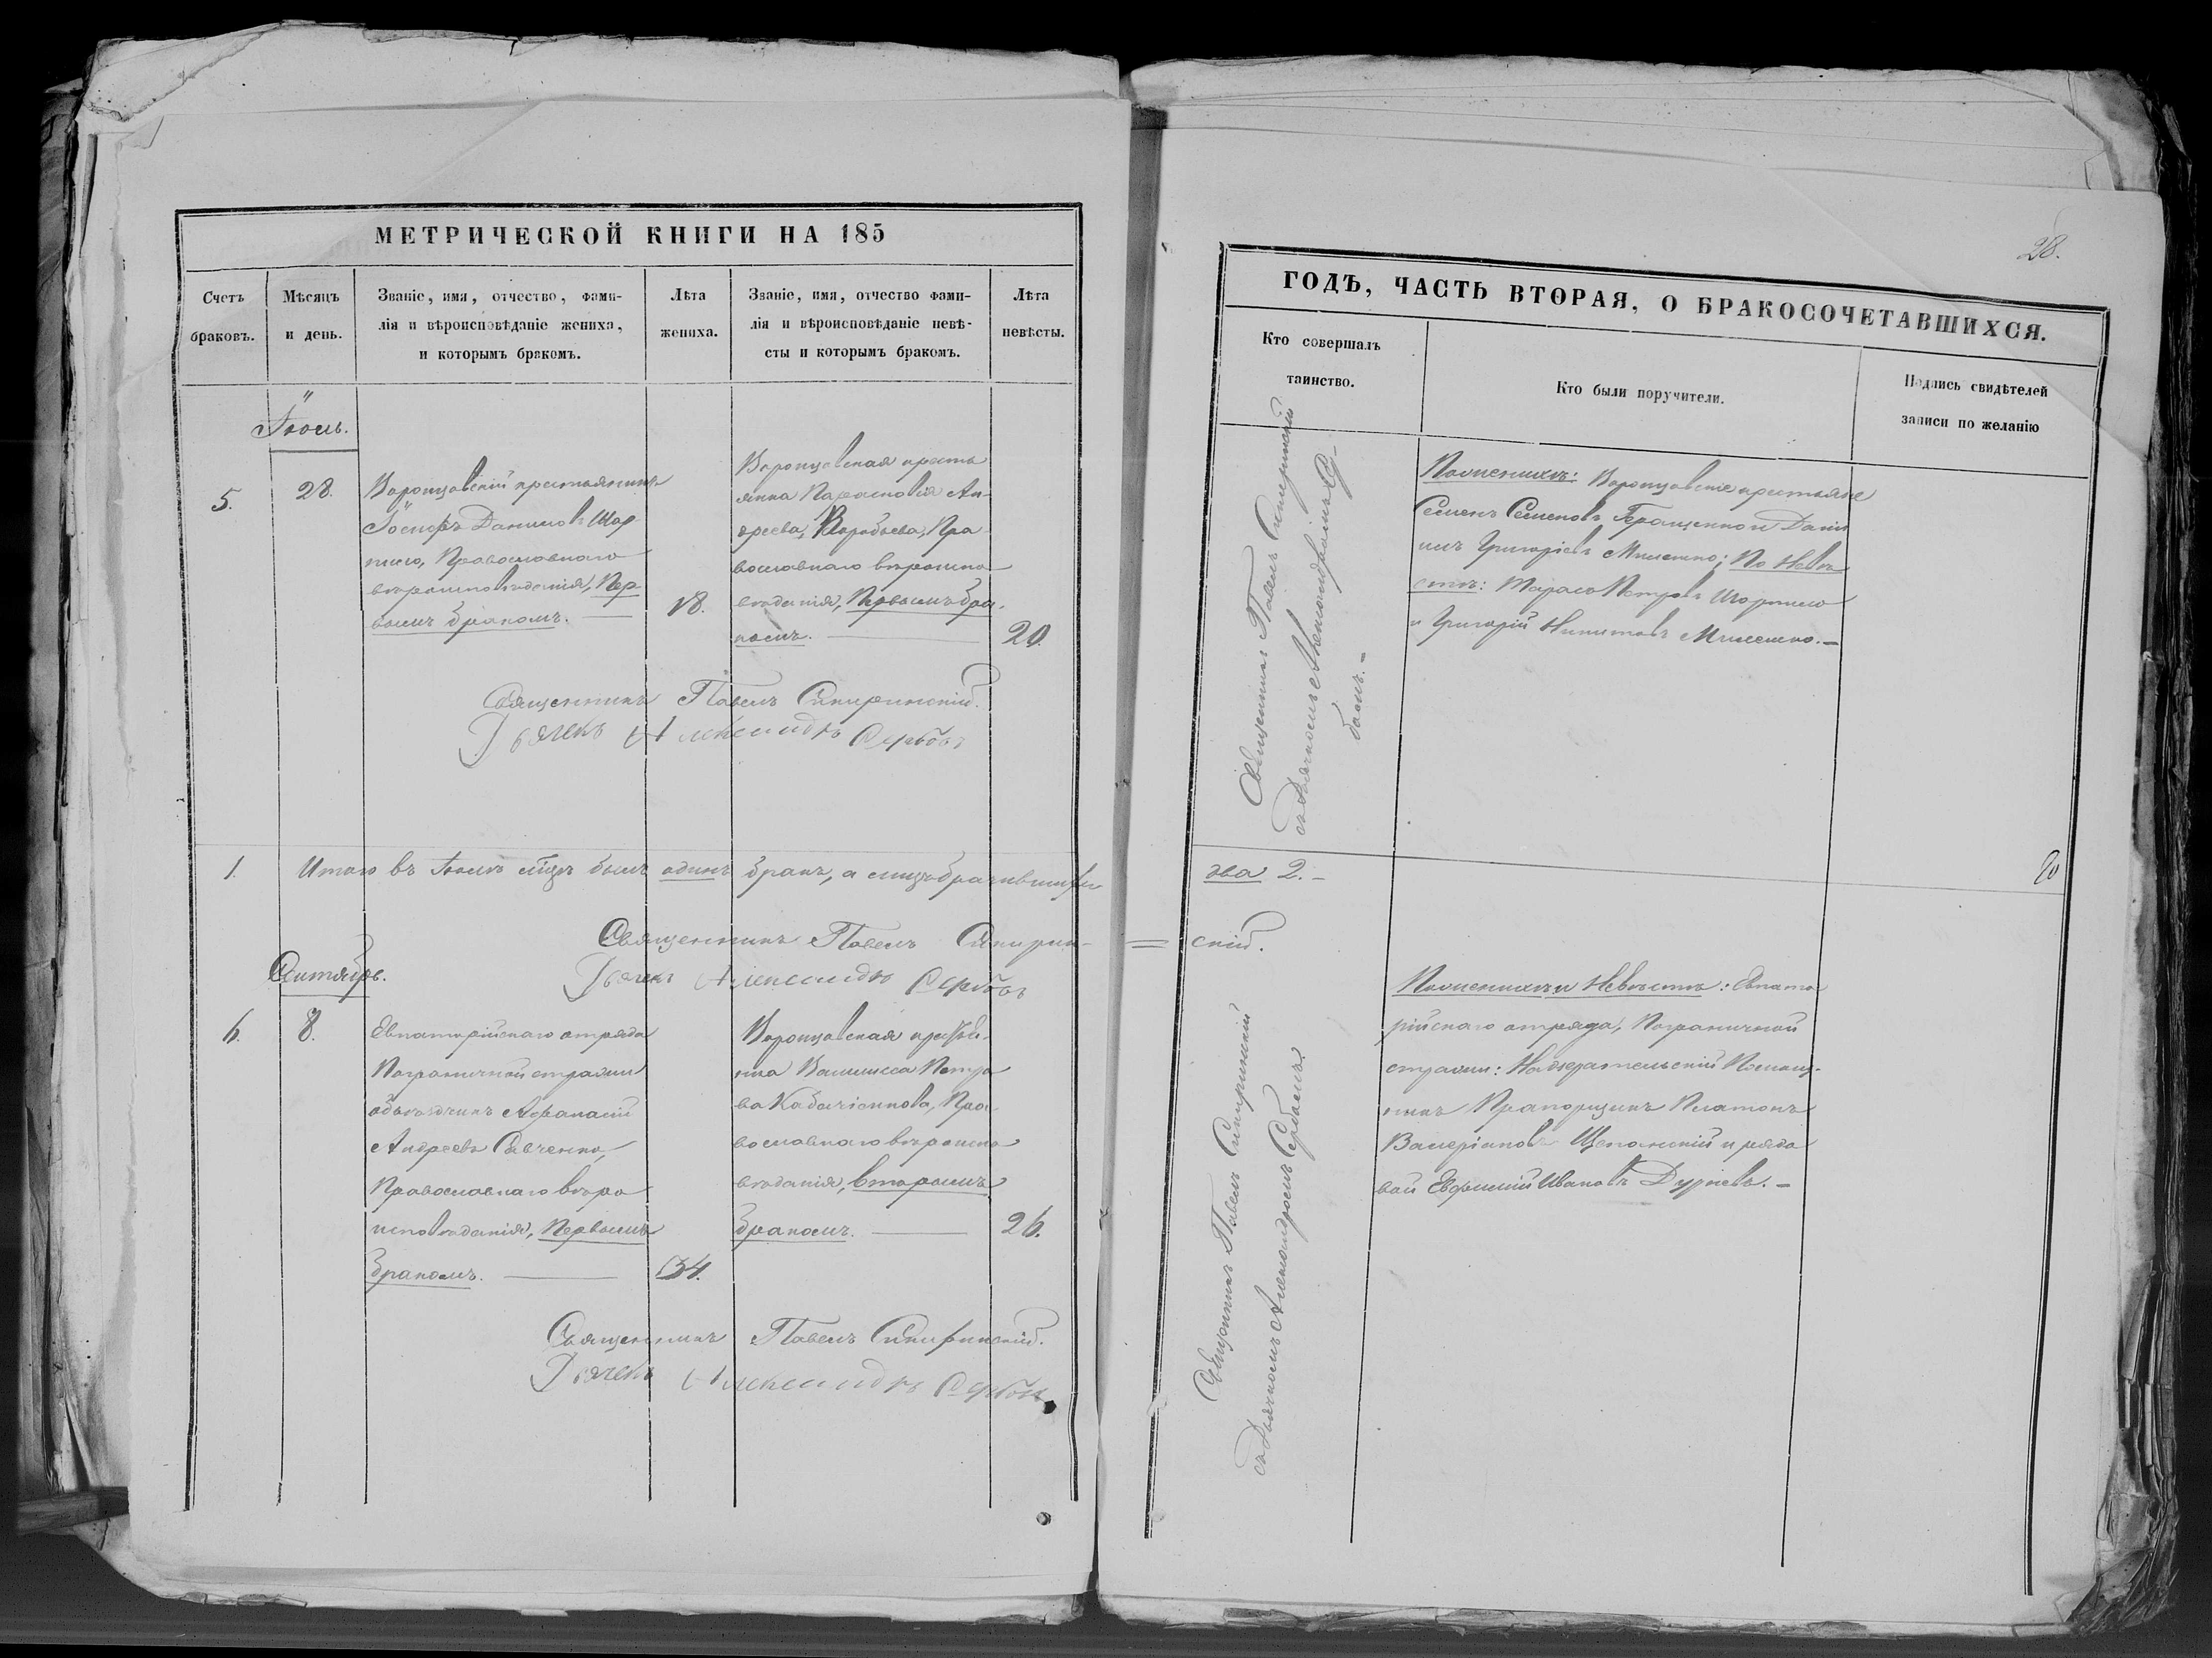 МЕТРИЧЕСКОЙ КНИГИ НА 185
Счетъ
браковъ.
Мѣсяцъ
и день.
Званіе, имя, отчество, фами-
лія и вѣроисповѣданіе жениха,
и которымъ бракомъ.
Лѣта
жениха.
Званіе, имя, отчество фами-
лія и вѣроисповѣданіе невѣ-
сты и которымъ бракомъ.
Лѣта
невѣсты.
5.
28.
Воронцовскій крестьянинъ
Іосифъ Даниловъ Шар-
Православнаго
вѣроисповѣданія, Пер-
вымъ бракомъ.
18.
Воронцовская кресть
янка Парасковія Ан-
дреева, Воробьева, Пра
вославнаго вѣроиспо
вѣданія, Первымъ бра-
комъ.
20.
Священникъ Павелъ
Дьячекъ Александръ Сербовъ
1.
Итого въ мѣцѣ былъ одинъ бракъ, а лицъ бракившихся
Священникъ Павелъ
Дьячекъ Александръ Сербовъ
Октябрь.
6.
8.
Евпаторійскаго отряда
Пограничной стражи
объѣздчикъ Афанасій
Андреевъ Савченко,
Православнаго вѣро
исповѣданія, Первымъ
бракомъ.
34.
Воронцовская
Петро
ва Пра-
вославнаго вѣроиспо
вѣданія, вторымъ
бракомъ.
26.
Священникъ Павелъ
Дьячекъ Александръ Сербовъ
28.
ГОДЪ, ЧАСТЬ ВТОРАЯ, О БРАКОСОЧЕТАВШИХСЯ.
Кто совершалъ
таинство.
Кто были поручители.
Подпись свидѣтелей
записи по желанію
Священникъ Павелъ
съ Дьячкомъ Александромъ Сер-
бомъ.
По женихѣ: Воронцовскіе крестьяне
Семенъ Семеновъ Геращенко и Дани
илъ Григорьевъ Милешко; По невѣ
стѣ: Тарасъ Петровъ
и Григорій Никитовъ Милешко.
два 2.
скій.
Священникъ Павелъ
съ Дьячкомъ Александромъ Сербомъ.
По женихѣ и Невѣстѣ: Евпато
рійскаго отряда, Пограничной
стражи: Надзирательскій Помощ-
никъ Прапорщикъ Платонъ
Валеріановъ и рядо
вой Евфимій Ивановъ